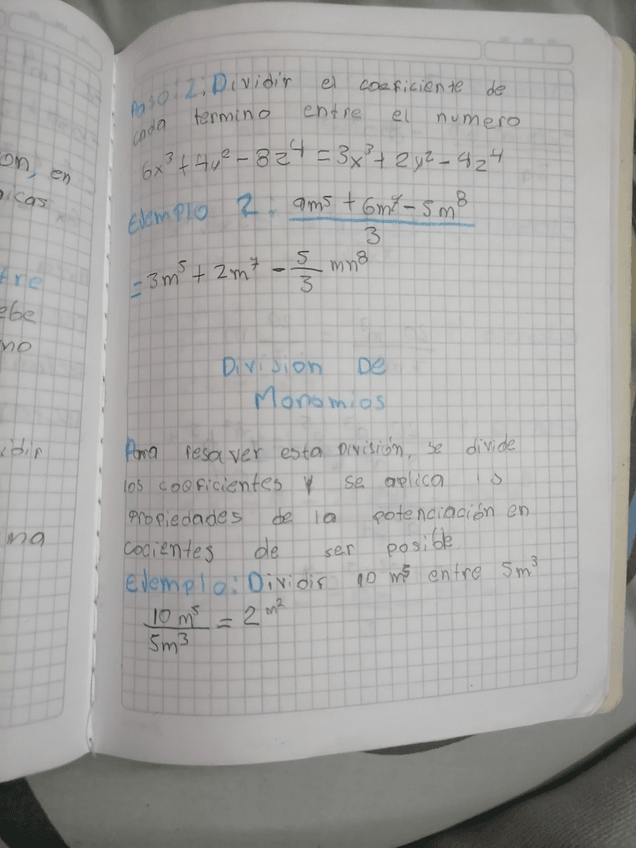 on, en
icas
tre
ebe
no
idir
na
Paso: 2: Dividir el coeficiente de
cada termino entre el numero
6x³ + 4y² - 8z⁴ = 3x³ + 2y² - 4z⁴
Ejemplo 2: 9m⁵ + 6m⁷ - 5m⁸
3
= 3m⁵ + 2m⁷ - 5/3 mn⁸
División De
Monomios
Para resolver esta División, se divide
los coeficientes y se aplica
propiedades de la potenciación en
cocientes de ser posible
Ejemplo: Dividir 10 m⁵ entre 5m³
10 m⁵ = 2 m²
5m³